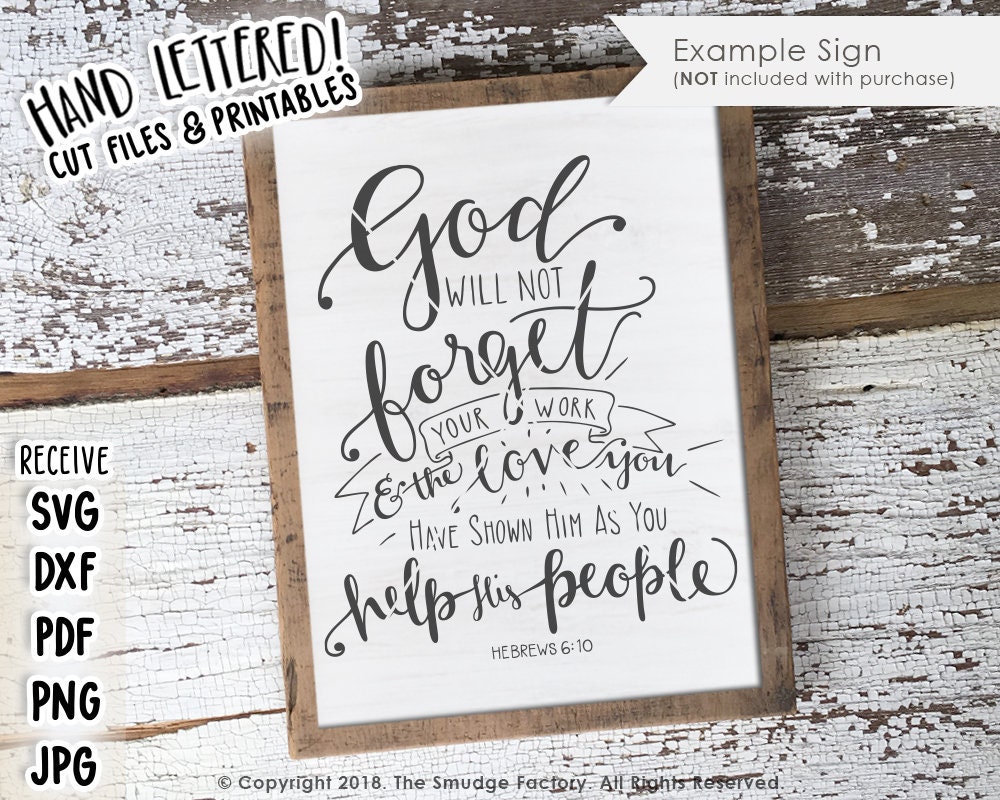 HAND LETTERED!
CUT FILES & PRINTABLES
Example Sign
(NOT included with purchase)
God
WILL NOT
forget
YOUR WORK
& the love you
HAVE SHOWN HIM AS YOU
help His people
HEBREWS 6:10
RECEIVE
SVG
DXF
PDF
PNG
JPG
© Copyright 2018. The Smudge Factory. All Rights Reserved.